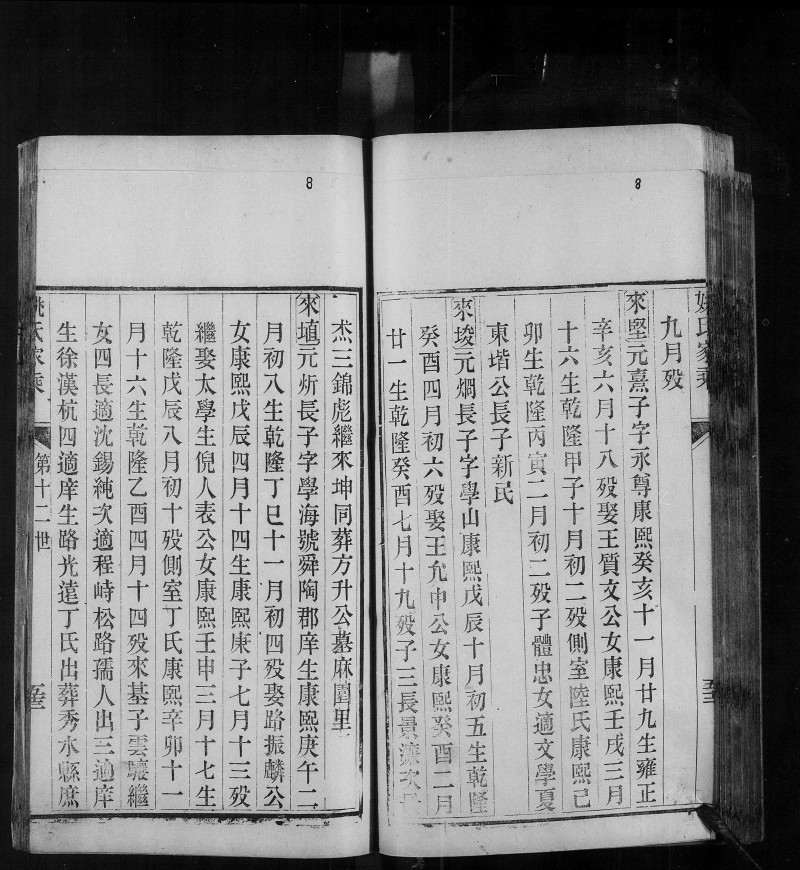 8
姚氏家乘
九月殁
來堅元熹子字永尊康熙癸亥十一月廿九生雍正
辛亥六月十八殁娶王質文公女康熙壬戌三月
十六生乾隆甲子十月初二殁側室陸氏康熙己
卯生乾隆丙寅二月初二殁子體忠女適文學夏
東堦公長子新民
來埈元烱長子字學山康熙戊辰十月初五生乾隆
癸酉四月初六殁娶王允中公女康熙癸酉二月
廿一生乾隆癸酉七月十九殁子三長景濂次
8
杰三錦彪繼來坤同葬方升公墓麻圍里
來埴元炘長子字學海號舜陶郡庠生康熙庚午二
月初八生乾隆丁巳十一月初四殁娶路振麟公
女康熙戊辰四月十四生康熙庚子七月十三殁
繼娶太學生倪人表公女康熙壬申三月十七生
乾隆戊辰八月初十殁側室丁氏康熙辛卯十一
月十六生乾隆乙酉四月十四殁來基子雲驤繼
女四長適沈錫純次適程峙松路孺人出三適庠
生徐漢杭四適庠生路光遠丁氏出葬秀水縣庶
姚氏家乘
第十二世